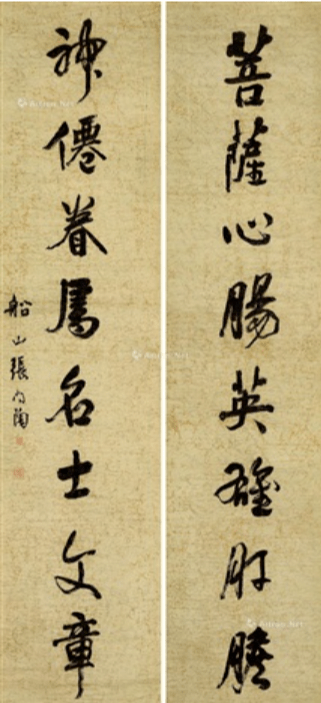 菩薩心腸英雄肝膽
神僊眷屬名士文章
船山張問陶
Artron.Net
Artron.Net
Artron.Net